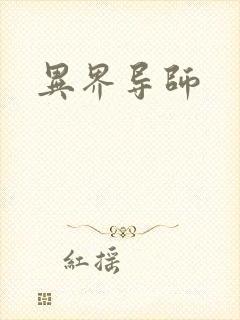 異界导師
紅搖